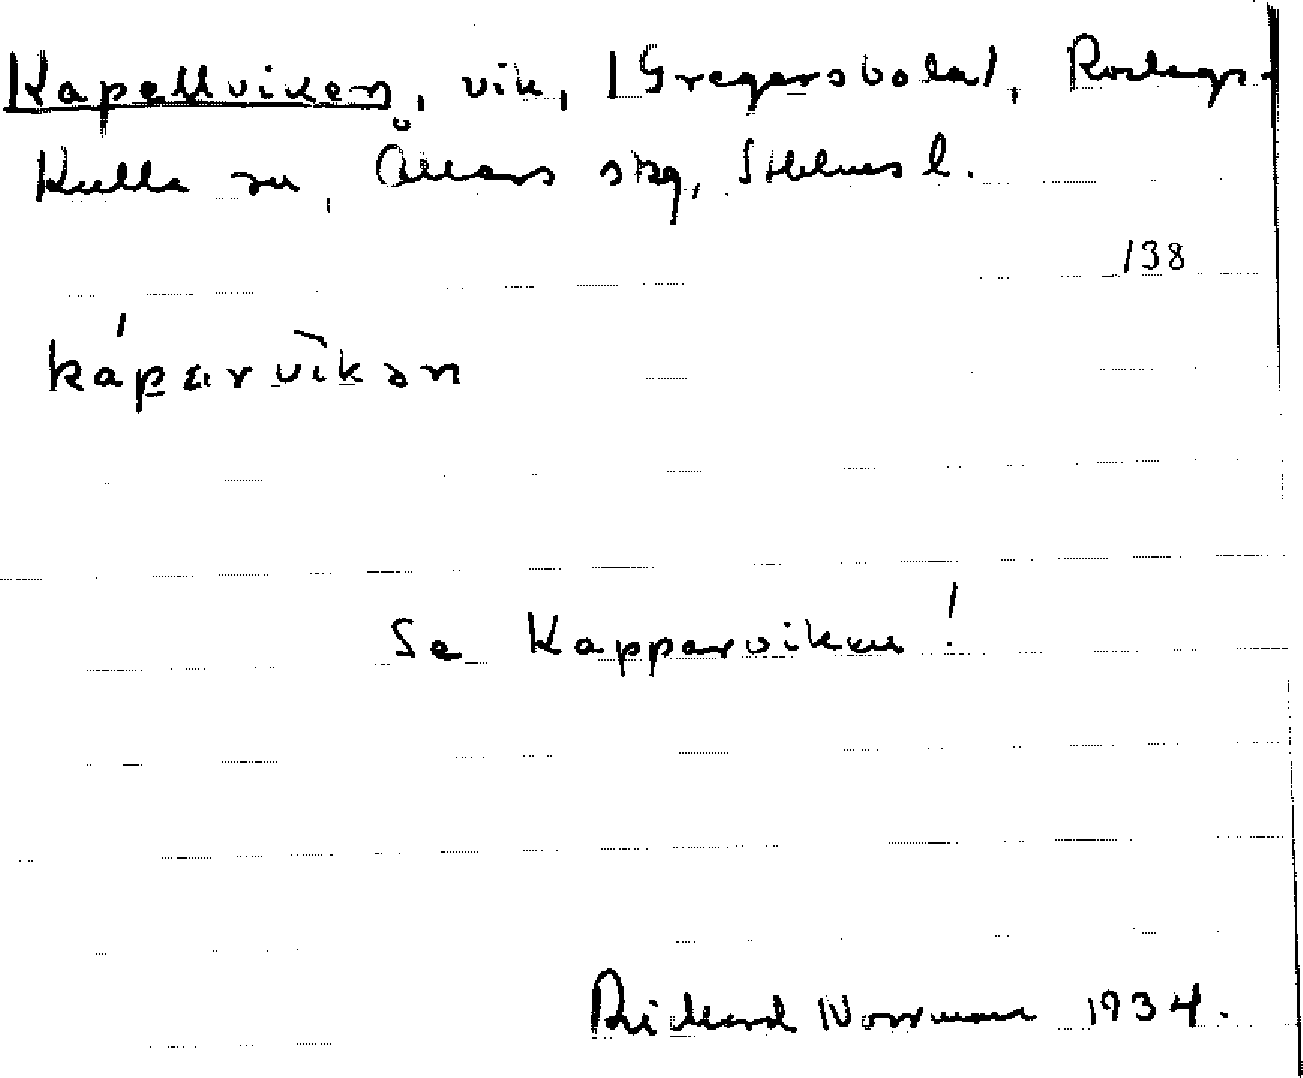 Kapellviken, vik, [Gregersboda], Roslags-
Kulla sn, Åkers skg, Sthlms l.
138
káparvìkən
Se Kapparviken!
Rickard Norrman 1934.